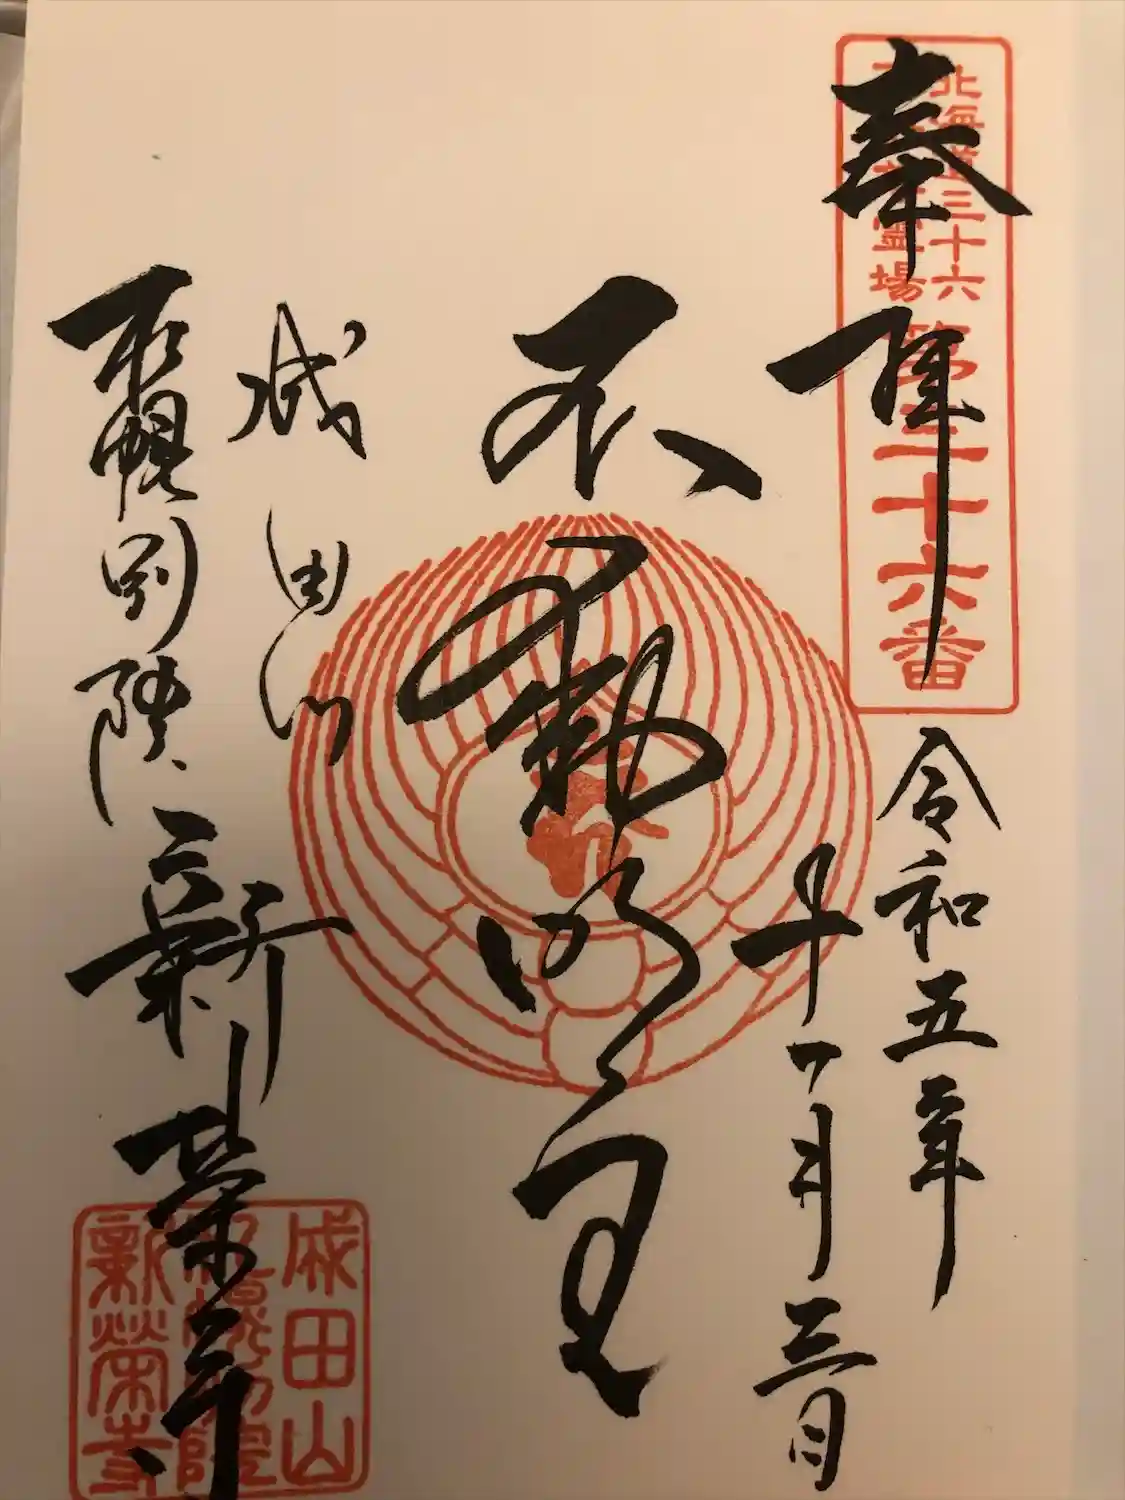 奉拝
北海道三十六
霊場
第二十六番
令和五年
十一月三日
不動明王
成田山
札幌別院
新栄寺
成田山
札幌別院
新榮寺